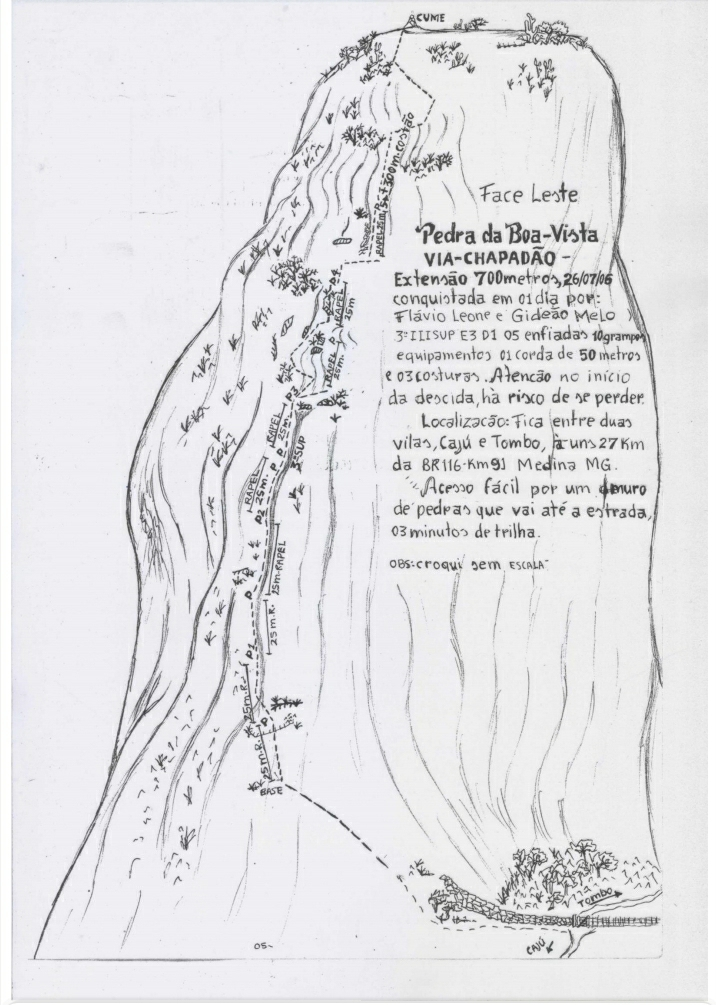 CUME
RAPEL 25m. 5ª+300m. costão
Face Leste
Pedra da Boa-Vista
VIA-CHAPADÃO -
Extensão 700metros, 26/07/06
conquistada em 01 dia por:
Flávio Leone e Gideão Melo
3º IIISUP E3 D1 05 enfiadas 10grampos
equipamentos 01 corda de 50 metros
e 03 costuras. Atencão no início
da descida, há risco de se perder.
Localizacão: Fica entre duas
vilas, Cajú e Tombo, à uns 27 Km
da BR116-Km91 Medina MG.
Acesso fácil por um muro
de pedras que vai até a estrada,
03 minutos de trilha.
OBS: croqui sem ESCALA
P4
RAPEL
25m
P
RAPEL
25m.
P3
RAPEL
25m.
P
3ºSUP
RAPEL
25m.
P2
25m-RAPEL
P
25 m.R.
P1
25m.R.
P
25m.R.
BASE
Tombo
CAJÚ
05-